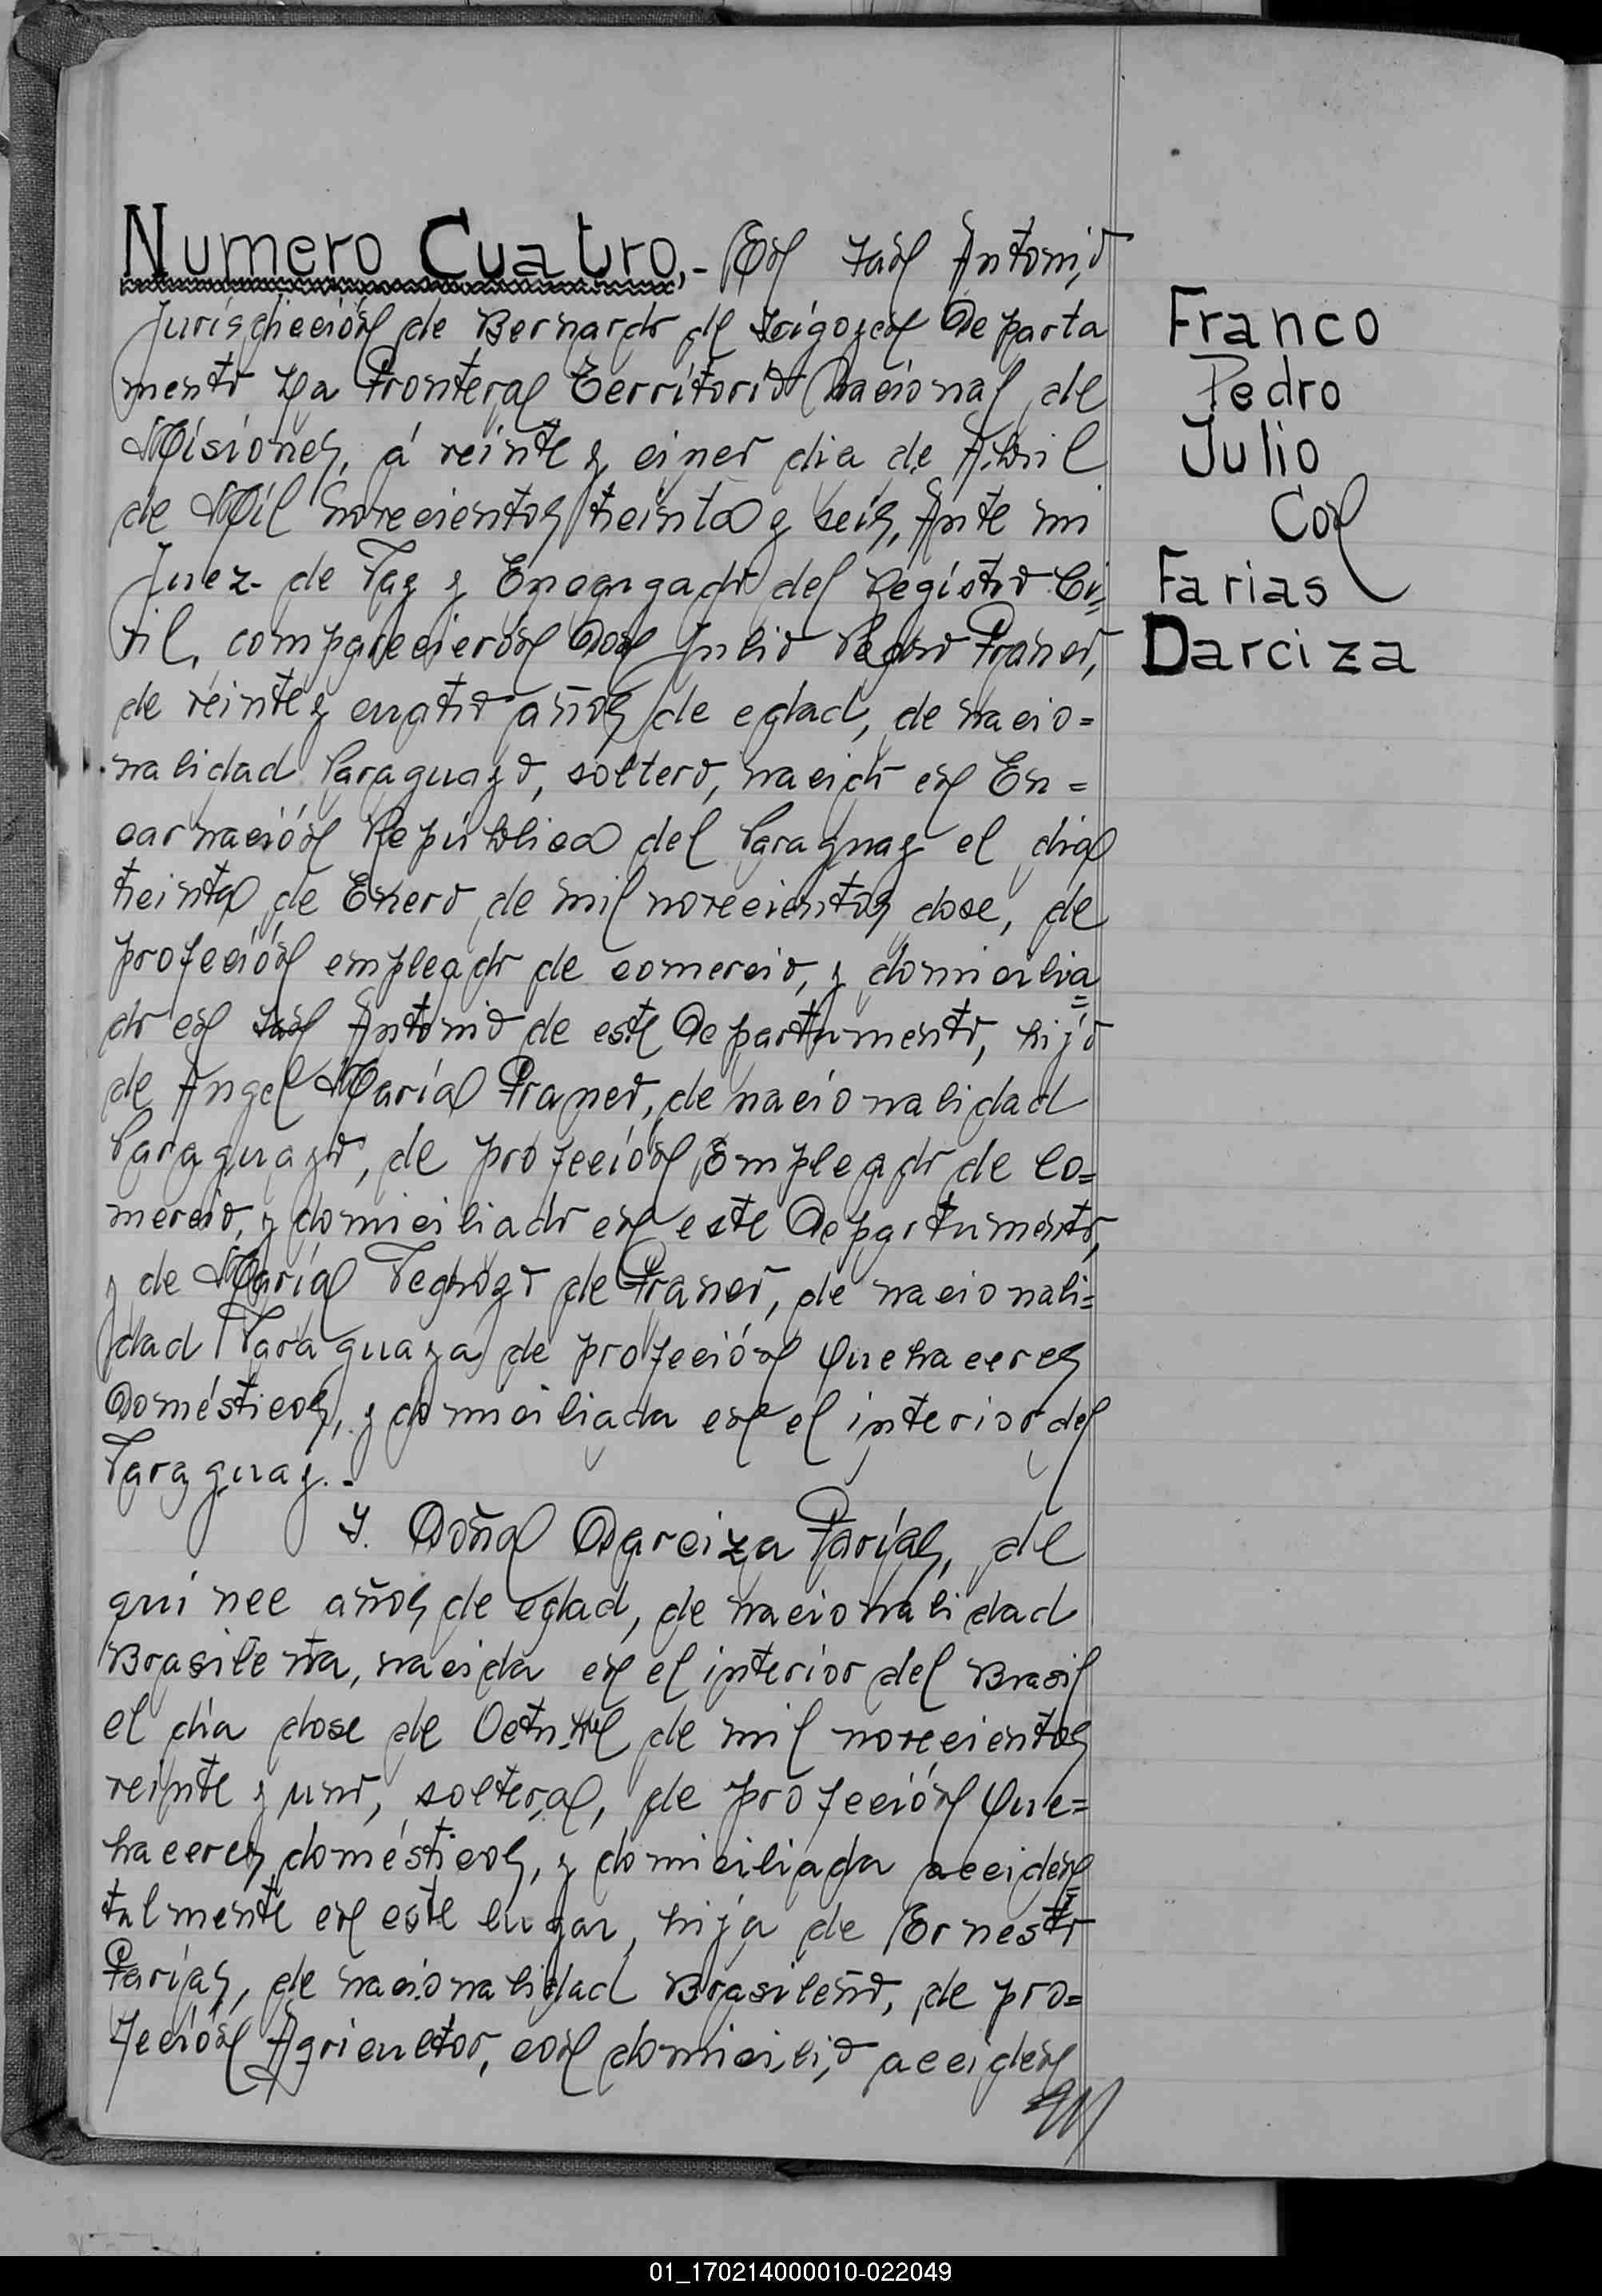 Numero Cuatro,- En San Antonio
Jurisdicción de Bernardo de Irigoyen Departa
mento La Frontera Territorio Nacional de
Misiones, á veinte y cinco dia de Abril
de Mil novecientos treinta y seis, Ante mi
Juez de Paz y Encargado del Registro Ci=
vil, comparecierón Don Julio Pedro Franco,
de veinte y cuatro años de edad, de nacio=
nalidad Paraguayo, soltero, nacido en En=
carnación República del Paraguay el dia
treinta de Enero de mil novecientos dose, de
profeción empleado de comercio, y domicilia=
do en San Antonio de este Departamento, hijo
de Angel María Franco, de nacionalidad
Paraguayo, de profeción Empleado de Co=
mercio, y domiciliado en este Departamento,
y de María de Franco, de nacionali=
dad Paraguaya de profeción Quehaceres
Domésticos, y domiciliada en el interior del
Paraguay.-
Y. Doña Darciza Farías, de
quince años de edad, de nacionalidad
Brasileña, nacida en el interior del Brasil
el día dose de Octubre de mil novecientos
veinte y uno, soltera, de profeción Que=
haceres domésticos, y domiciliada acciden=
talmente en este lugar, hija de Ernesto
Farías, de nacionalidad Brasileño, de pro=
feción Agricultor, con domicilio acciden
Franco
Pedro
Julio
Con
Farias
Darciza
01_170214000010-022049